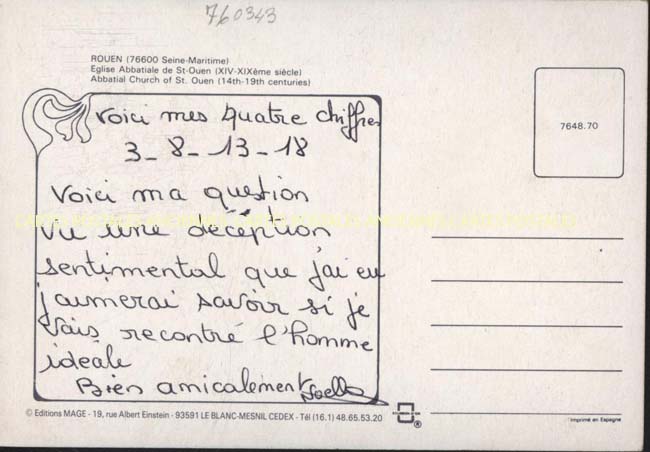 760343
ROUEN (76600 Seine-Maritime)
Eglise Abbatiale de St-Ouen (XIV-XIXème siècle)
Abbatial Church of St. Ouen (14th-19th centuries)
Voici mes quatre chiffres
3_8_13_18
7648.70
Voici ma question
Vu une déception
sentimental que j'ai eu
j'aimerai savoir si je
vais recontré l'homme
idéale
Bien amicalement Noella
© Editions MAGE - 19, rue Albert Einstein - 93591 LE BLANC-MESNIL CEDEX - Tél (16.1) 48.65.53.20
®
Imprimé en Espagne